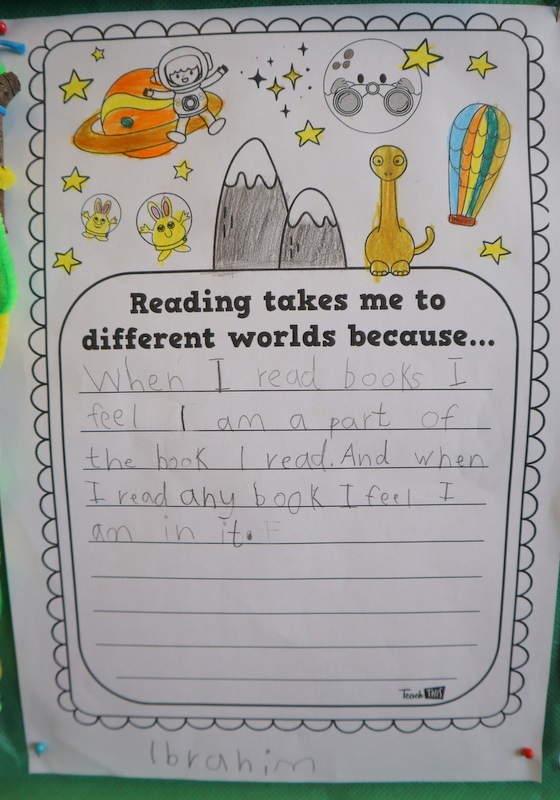 Reading takes me to
different worlds because...
When I read books I
feel I am a part of
the book I read. And when
I read any book I feel I
am in it.
Teach THIS
Ibrahim